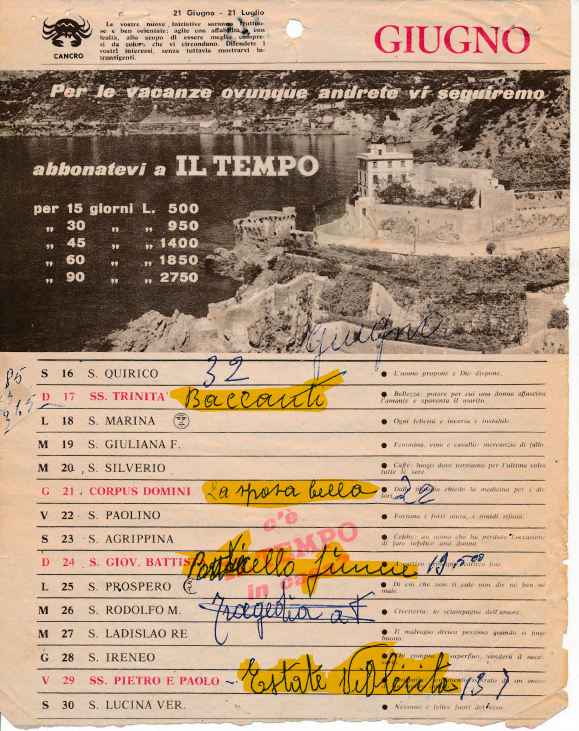 21 Giugno - 21 Luglio
Le vostre nuove iniziative saranno fruttuo-
se e ben orientate; agite con affabilità e con
lealtà, allo scopo di essere meglio compre-
si da coloro che vi circondano. Difendete i
vostri interessi, senza tuttavia mostrarvi in-
transigenti.
CANCRO
GIUGNO
Per le vacanze ovunque andrete vi seguiremo
abbonatevi a IL TEMPO
per 15 giorni L. 500
„ 30 „ „ 950
„ 45 „ „ 1400
„ 60 „ „ 1850
„ 90 „ „ 2750
giugno
32
85
315
S 16 S. QUIRICO L'uomo propone e Dio dispone.
D 17 SS. TRINITA' Baccanti Bellezza: potere per cui una donna affascina
l'amante e spaventa il marito.
L 18 S. MARINA Ogni felicità è incerta e instabile.
M 19 S. GIULIANA F. Femmina, vino e cavallo: mercanzia di fallo.
M 20 S. SILVERIO Caffè: luogo dove torniamo per l'ultima volta
tutte le sere.
G 21 CORPUS DOMINI La sposa bella 22 chiedo la medicina per i do-
lori.
V 22 S. PAOLINO Fortuna i forti aiuta, i timidi rifiuta.
c'è
IL TEMPO
in casa
S 23 S. AGRIPPINA Celibe: un uomo che ha perduto l'occasione
di fare infelice una donna.
D 24 S. GIOV. BATTIS Ponticello fiume 19.500 fine
L 25 S. PROSPERO Di ciò che non ti cale non dir nè ben nè
male.
M 26 S. RODOLFO M. Tragedia a Civetteria: lo sciampagna dell'amore.
M 27 S. LADISLAO RE Il malvagio diviene pessimo quando si finge
buono.
G 28 S. IRENEO Chi compra il superfluo, venderà il nece
V 29 SS. PIETRO E PAOLO - Estate Violenta 137
S 30 S. LUCINA VER. Nessuno è felice fuori del vero.